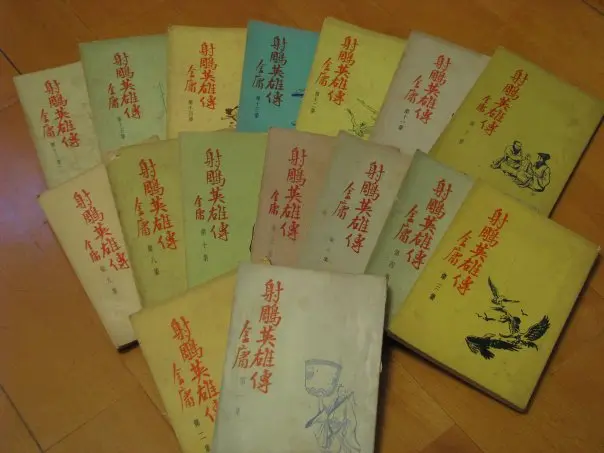 射鵰英雄傳
金庸
射鵰英雄傳
金庸
射鵰英雄傳
金庸
第十四集
射鵰英雄傳
金庸
第十三集
射鵰英雄傳
金庸
第十二集
射鵰英雄傳
金庸
第十一集
射鵰英雄傳
金庸
第十集
射鵰英雄傳
金庸
射鵰英雄傳
金庸
第八集
射鵰英雄傳
金庸
射鵰英雄傳
金庸
射鵰英雄傳
金庸
射鵰英雄傳
金庸
第四集
射鵰英雄傳
金庸
第三集
射鵰英雄傳
金庸
第二集
射鵰英雄傳
金庸
第一集